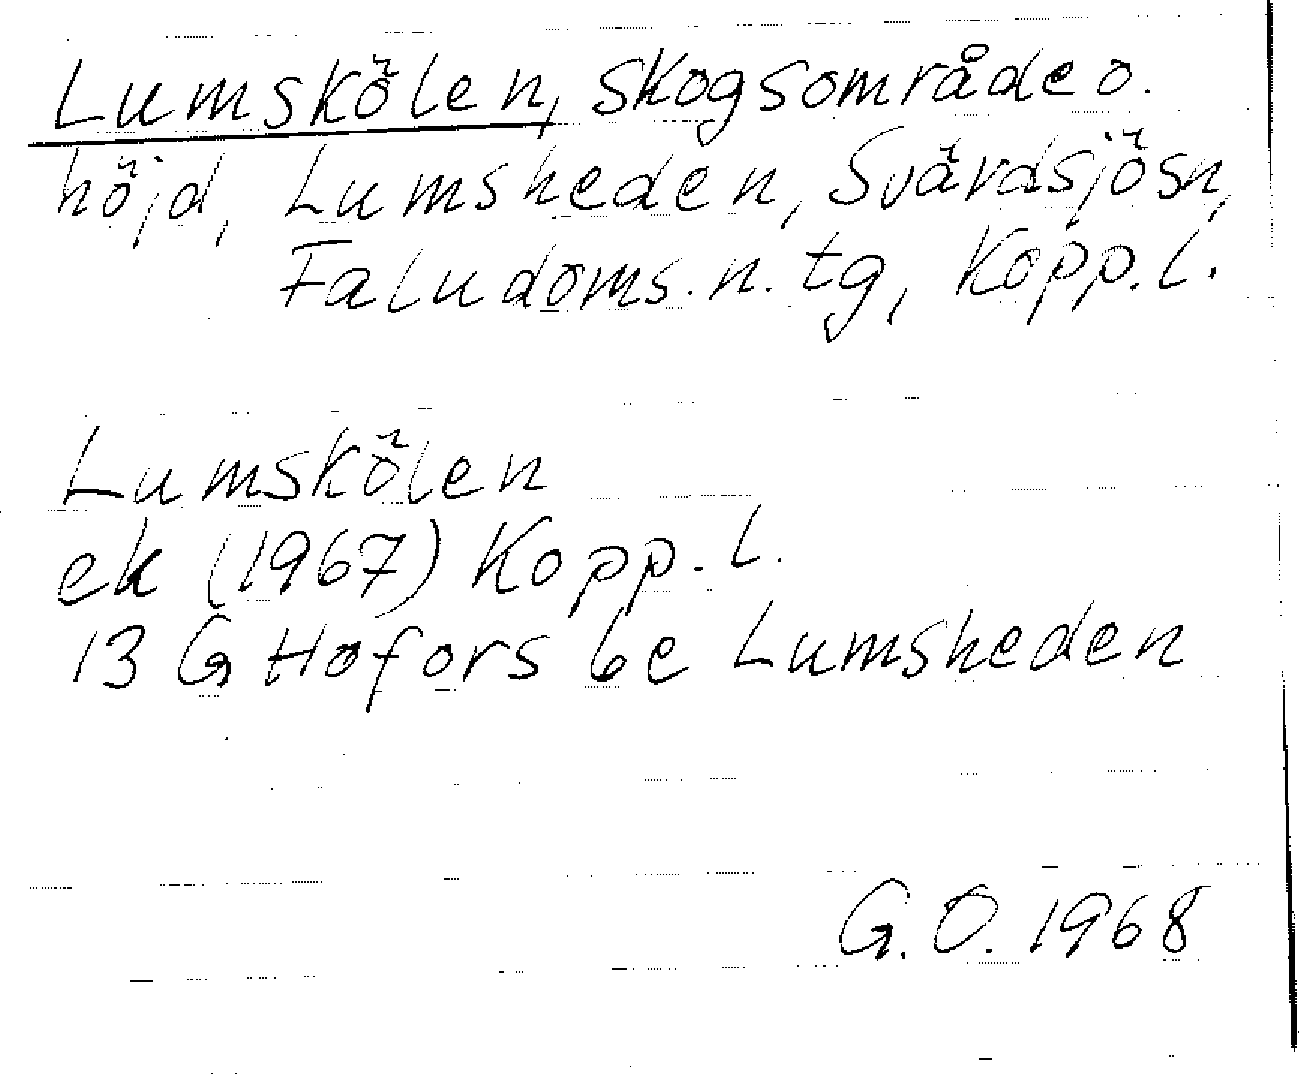 Lumskölen, skogsområde o.
höjd, Lumsheden, Svärdsjösn,
Faludoms. n. tg, Kopp. l.
Lumskölen
ek (1967) Kopp. l.
13 G Hofors 6e Lumsheden
G. O. 1968